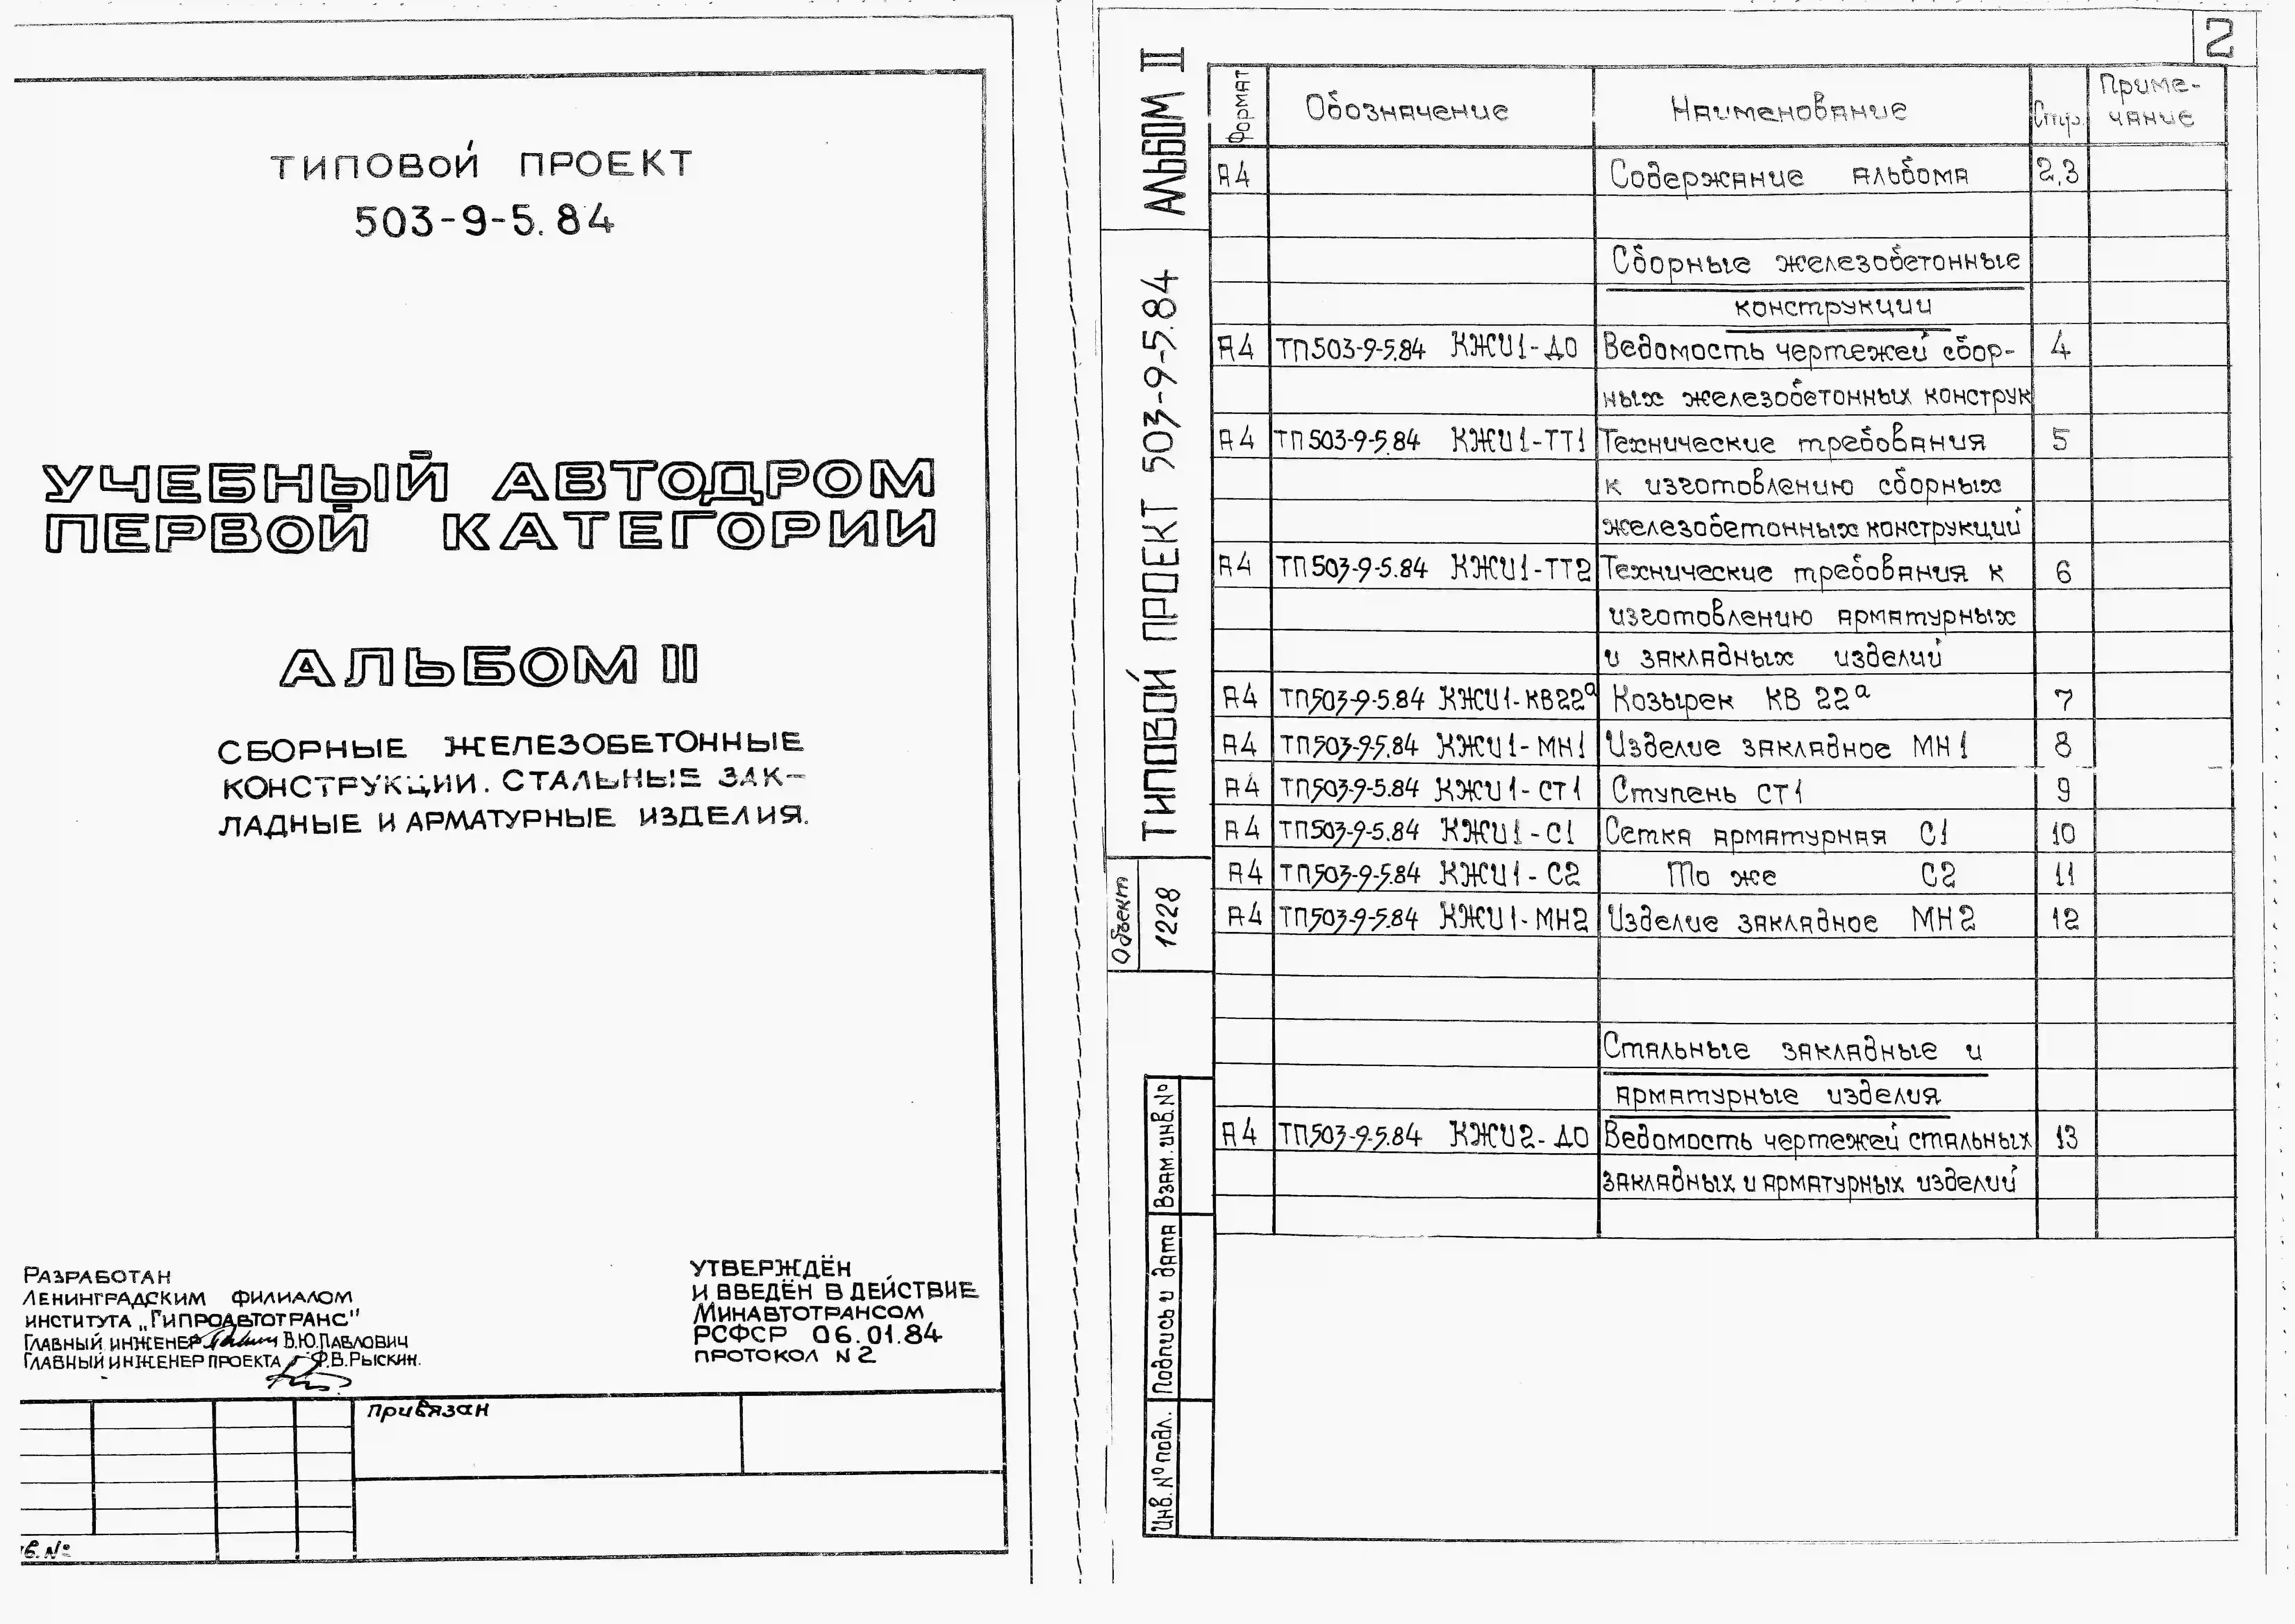 ТИПОВОЙ ПРОЕКТ
503-9-5.84
УЧЕБНЫЙ АВТОДРОМ
ПЕРВОЙ КАТЕГОРИИ
АЛЬБОМ II
СБОРНЫЕ ЖЕЛЕЗОБЕТОННЫЕ
КОНСТРУКЦИИ. СТАЛЬНЫЕ ЗАК-
ЛАДНЫЕ И АРМАТУРНЫЕ ИЗДЕЛИЯ.
РАЗРАБОТАН
ЛЕНИНГРАДСКИМ ФИЛИАЛОМ
ИНСТИТУТА „ГИПРОАВТОТРАНС"
ГЛАВНЫЙ ИНЖЕНЕР В.Ю.ПАВЛОВИЧ
ГЛАВНЫЙ ИНЖЕНЕР ПРОЕКТА Ф.В.РЫСКИН.
УТВЕРЖДЁН
И ВВЕДЁН В ДЕЙСТВИЕ
МИНАВТОТРАНСОМ
РСФСР 06.01.84
ПРОТОКОЛ N 2
привязан
в. №
2
АЛЬБОМ II
ТИПОВОЙ ПРОЕКТ 503-9-5.84
Объект 1228
Взам. инв. №
Подпись и дата
Инв. № подл.
Формат Обозначение Наименование Стр. Приме-
чание
А4 Содержание альбома 2,3
Сборные железобетонные
конструкции
А4 ТП503-9-5.84 КЖИ1-ДО Ведомость чертежей сбор- 4
ных железобетонных конструк
А4 ТП503-9-5.84 КЖИ1-ТТ1 Технические требования 5
к изготовлению сборных
железобетонных конструкций
А4 ТП503-9-5.84 КЖИ1-ТТ2 Технические требования к 6
изготовлению арматурных
и закладных изделий
А4 ТП503-9-5.84 КЖИ1-КВ22а Козырек КВ 22а 7
А4 ТП503-9-5.84 КЖИ1-МН1 Изделие закладное МН1 8
А4 ТП503-9-5.84 КЖИ1-СТ1 Ступень СТ1 9
А4 ТП503-9-5.84 КЖИ1-С1 Сетка арматурная С1 10
А4 ТП503-9-5.84 КЖИ1-С2 То же С2 11
А4 ТП503-9-5.84 КЖИ1-МН2 Изделие закладное МН2 12
Стальные закладные и
арматурные изделия
А4 ТП503-9-5.84 КЖИ2-ДО Ведомость чертежей стальных 13
закладных и арматурных изделий